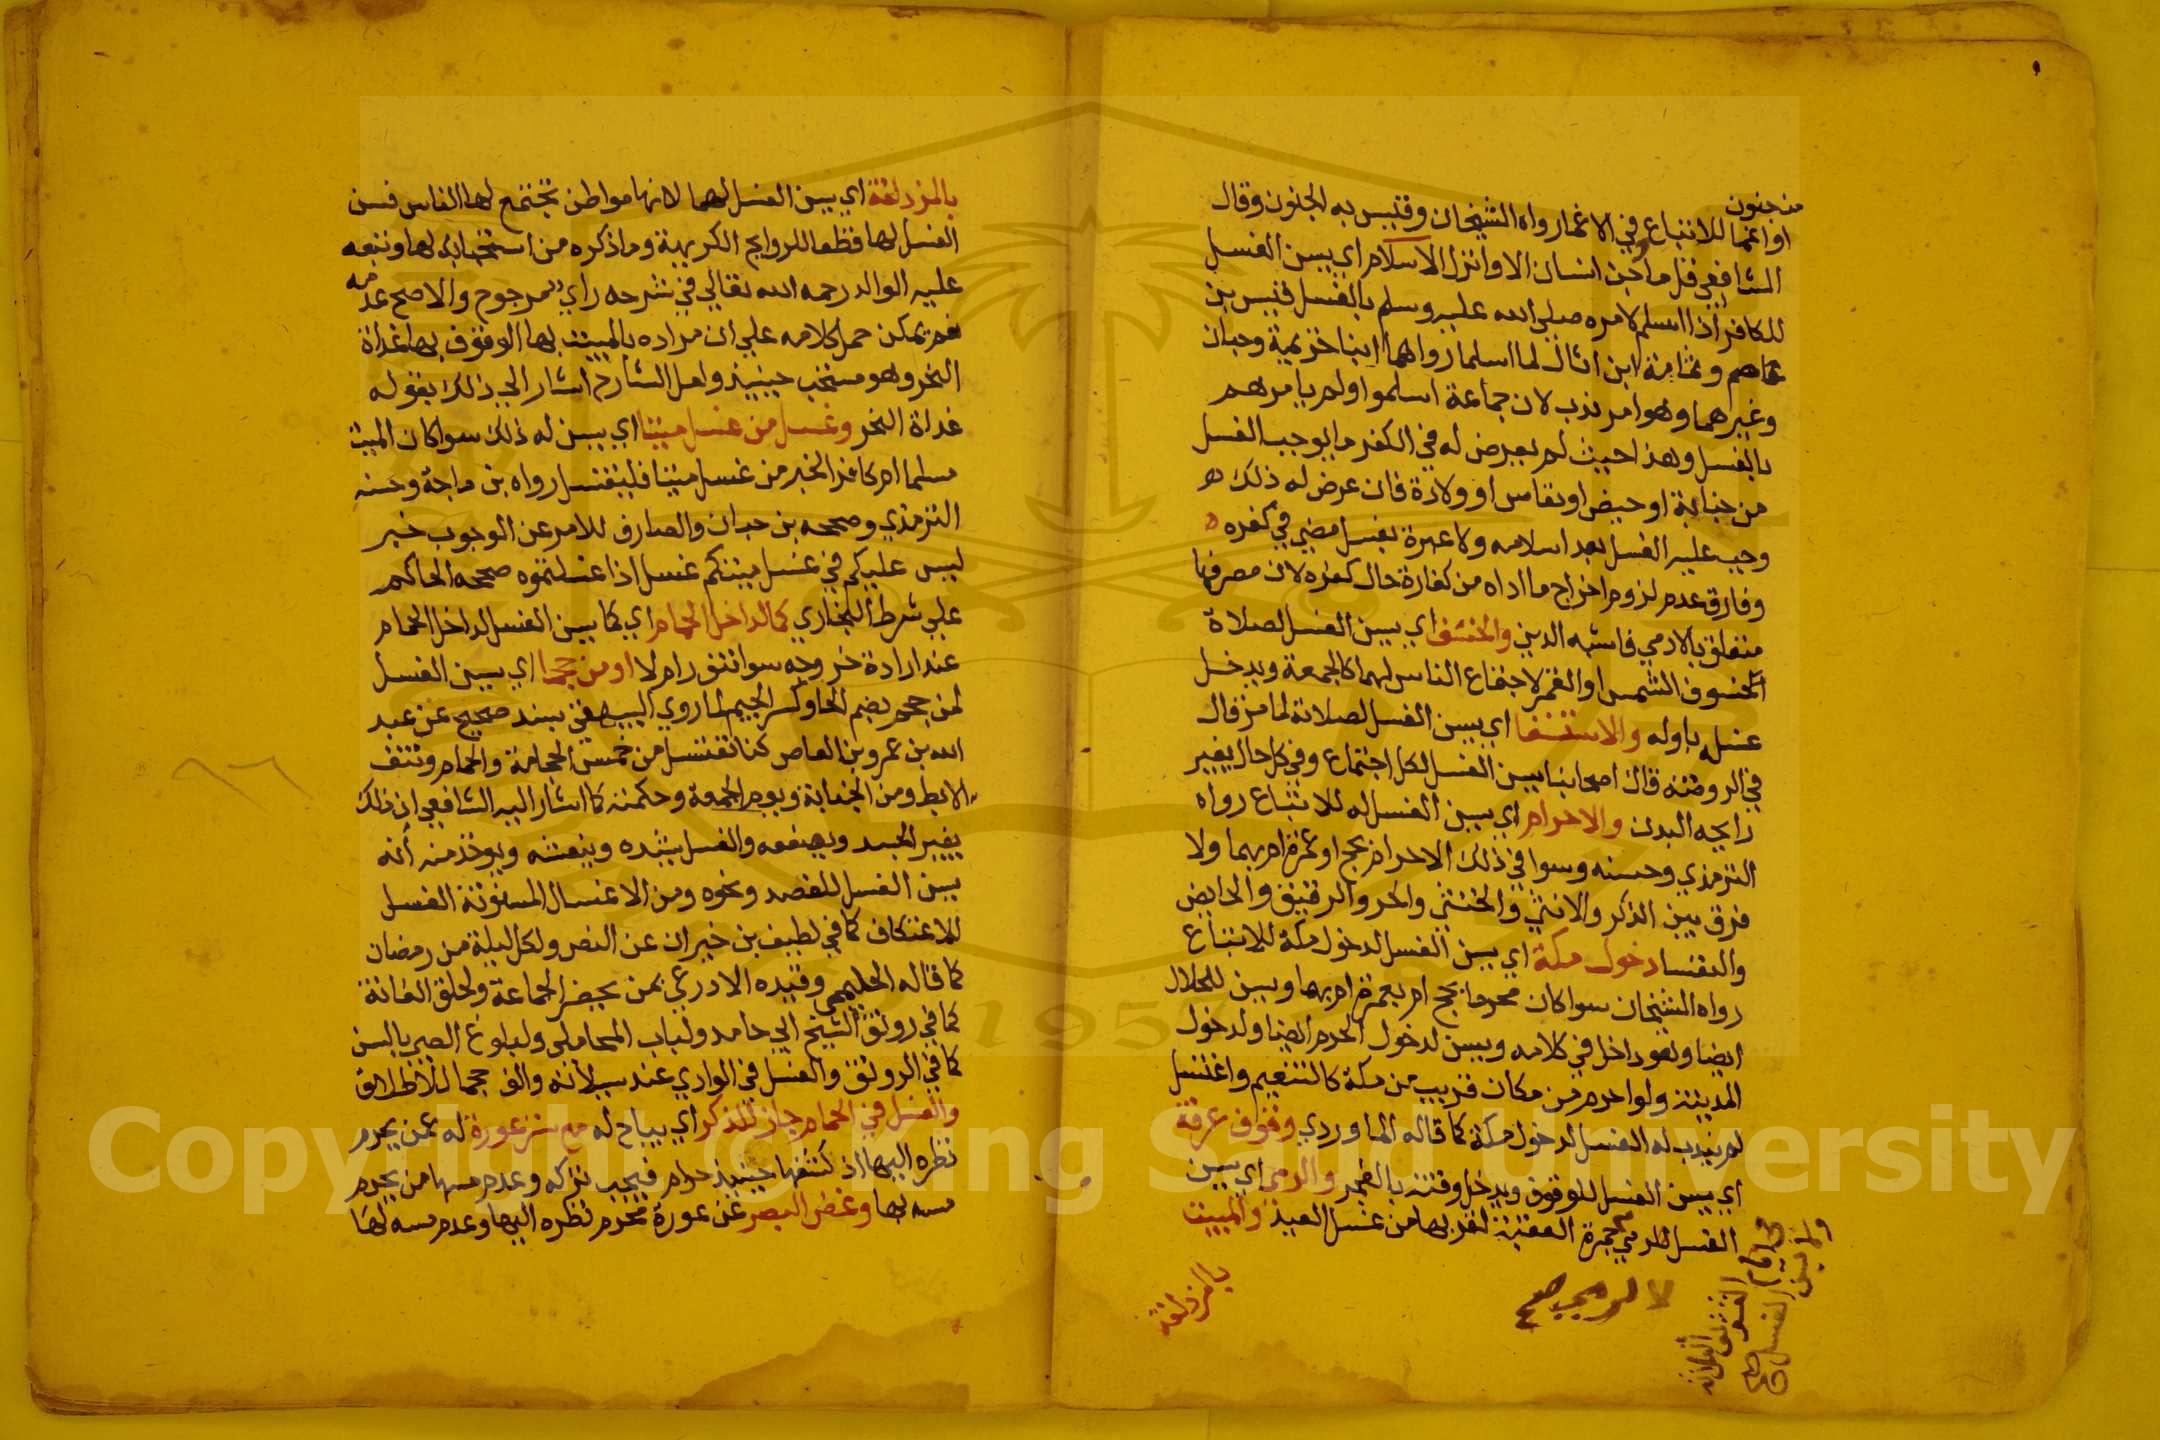 من جنون
او اغما للاتباع في الاغما رواه الشيخان وقيس به الجنون وقال
الشافعي قل ما جن انسان الا وانزل الاسلام اي يسن الغسل
للكافر اذا اسلم لامره صلي الله عليه وسلم بالغسل قيس بن
عاصم وثمامة ابن اثال لما اسلما رواهما ابنا خزيمة وحبان
وغيرهما وهو امر ندب لان جماعة اسلموا ولم يامرهم
بالغسل وهذا حيث لم يعرض له في الكفر ما يوجب الغسل
من جنابة او حيض او نفاس او ولادة فان عرض له ذلك
وجب عليه الغسل بعد اسلامه ولا عبرة بغسل مضي في كفره
وفارق عدم لزوم اخراج ما اداه من كفارة حال كفره لان مصرفها
متعلق بالادمي فاشبه الدين والخسف اي يسن الغسل لصلاة
الخسوف الشمس او القمر لاجتماع الناس لهما كالجمعة ويدخل
غسله باوله والاستسقا اي يسن الغسل لصلاته لما مر قال
في الروضة قال اصحابنا يسن الغسل لكل اجتماع وفي كل حال يغير
رايحه البدن والاحرام اي يسن الغسل له للاتباع رواه
الترمذي وحسنه وسوا في ذلك الاحرام بحج او عمرة ام بهما ولا
فرق بين الذكر والانثي والخنثي والحر والرقيق والحايض
والنفسا دخول مكة اي يسن الغسل لدخول مكة للاتباع
رواه الشيخان سوا كان محرما بحج ام بعمرة ام بهما ويسن للحلال
ايضا وهو داخل في كلامه ويسن لدخول الحرم ايضا ولدخول
المدينة ولو احرم من مكان قريب من مكة كالتنعيم واغتسل
لم يندب له الغسل لدخول مكة كما قاله الماوردي وقوف عرفة
اي يسن الغسل للوقوف ويدخل وقته بالفجر والرمي اي يسن
الغسل لرمي جمرة العقبة لقربها من غسل العيد والمبيت
بالمزدلفة
بالمزدلفة اي يسن الغسل لهما لانها مواطن تجتمع لها الناس فسن
الغسل لها قطعا للروايح الكريهة وما ذكره من استحبابه لها وتبعه
عليه الوالد رحمه الله تعالي في شرحه راي مرجوح والاصح عدمه
نعم يمكن حمل كلامه علي ان مراده بالمبيت بها الوقوف بها غداة
النحر وهو مستحب حينيذ ولعل الشارح اشار الي ذلك بقوله
غداة النحر وغسل من غسل ميتا اي يسن له ذلك سوا كان الميت
مسلما ام كافرا لخبر من غسل ميتا فليغتسل رواه بن ماجة وحسنه
الترمذي وصححه بن حبان والصارف للامر عن الوجوب خبر
ليس عليكم في غسل ميتكم غسل اذا غسلتموه صححه الحاكم
علي شرط البخاري كما لداخل الحمام اي كما يسن الغسل لداخل الحمام
عند ارادة خروجه سوا تنور ام لا او من حجما اي يسن الغسل
لمن حجم بضم الحا وكسر الجيم لما روي البيهقي بسند صحيح عن عبد
الله بن عمرو بن العاص كنا نغتسل من خمس من الحجامة والحمام ونتف
الابط ومن الجنابة ويوم الجمعة وحكمته كما اشار اليه الشافعي ان ذلك
يغير الجسد ويضعفه والغسل يشده وينعشه ويوخذ منه أنه
يسن الغسل للفصد ونحوه ومن الاغسال المسنونة الغسل
للاعتكاف كما في لطيف بن خيران عن النص ولكل ليلة من رمضان
كما قاله الحليمي وقيده الاذرعي بمن يحضر الجماعة ولحلق العانة
كما في رونق الشيخ ابي حامد ولباب المحاملي ولبلوغ الصبي بالسن
كما في الرونق والغسل في الوادي عند سيلانه والف حجما للاطلاق
والغسل في الحمام جاز للذكر اي يباح له مع ستر عورة له عن يحرم
نظره اليها اذ كشفها حينيذ حرام فيجب تركه وعدم مسها من يحرم
مسه لها وغض البصر عن عورة محرم نظره اليها وعدم مسه لها
1957
Copyright © King Saud University